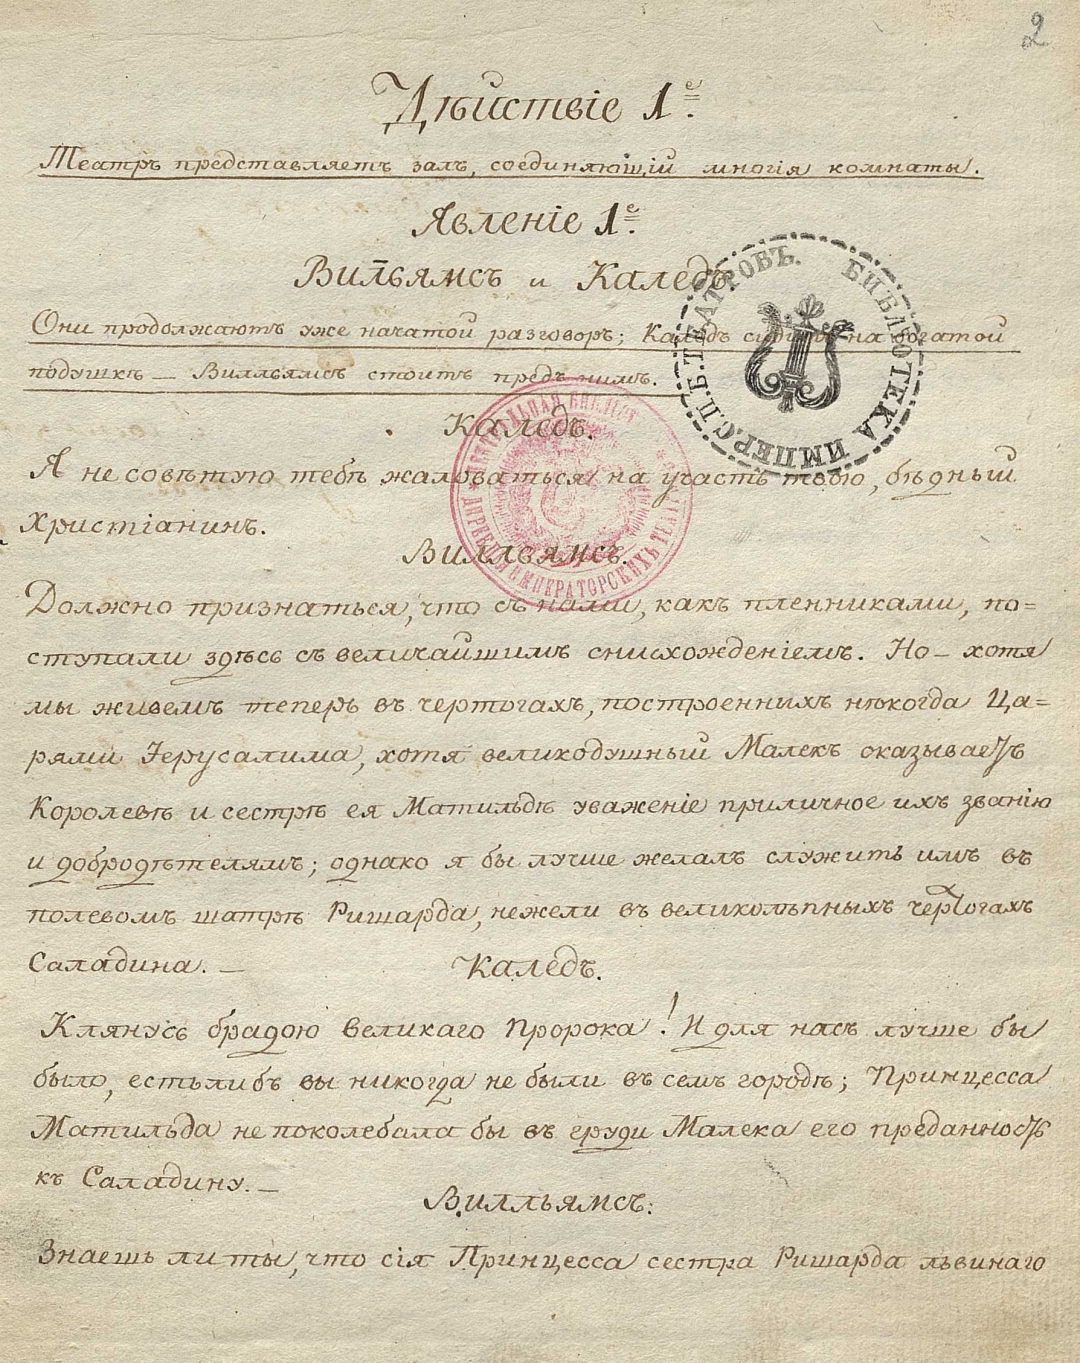 2
Дѣйствіе 1е.
Театръ представляетъ залъ, соединяющій многія комнаты.
Явленіе 1е.
Вильямсъ и Каледъ.
Они продолжаютъ уже начатой разговоръ; Каледъ сидитъ на богатой
подушкѣ — Вилльямсъ стоитъ предъ нимъ.
БИБЛІОТЕКА ИМПЕР. С.П.Б. ТЕАТРОВЪ.
Каледъ.
Я не совѣтую тебѣ жаловаться на участь твою, бѣдный
Христіанинъ.
Вилльямсъ.
ЦЕНТРАЛЬНАЯ БИБЛІОТ
ДИРЕКЦІЯ ИМПЕРАТОРСКИХЪ ТЕАТР
Должно признаться, что съ нами, какъ пленниками, по=
ступали здѣсь съ величайшимъ снисхожденіемъ. Но — хотя
мы живемъ теперь въ чертогахъ, построенныхъ нѣкогда Ца=
рями Іерусалима, хотя великодушный Малекъ оказываетъ
Королевѣ и сестрѣ ея Матильдѣ уваженіе приличное ихъ званію
и добродѣтелямъ; однако я бы лучше желалъ служить имъ въ
полевомъ шатрѣ Ришарда, нежели въ великолѣпныхъ чертогахъ
Саладина. —
Каледъ.
Клянусь брадою великаго Пророка! И для насъ лучше бы
было, естьлибъ вы никогда не были въ семъ городѣ; Принцесса
Матильда не поколебала бы въ груди Малека его преданность
къ Саладину. —
Вилльямсъ.
Знаешь ли ты, что сія Принцесса сестра Ришарда львинаго